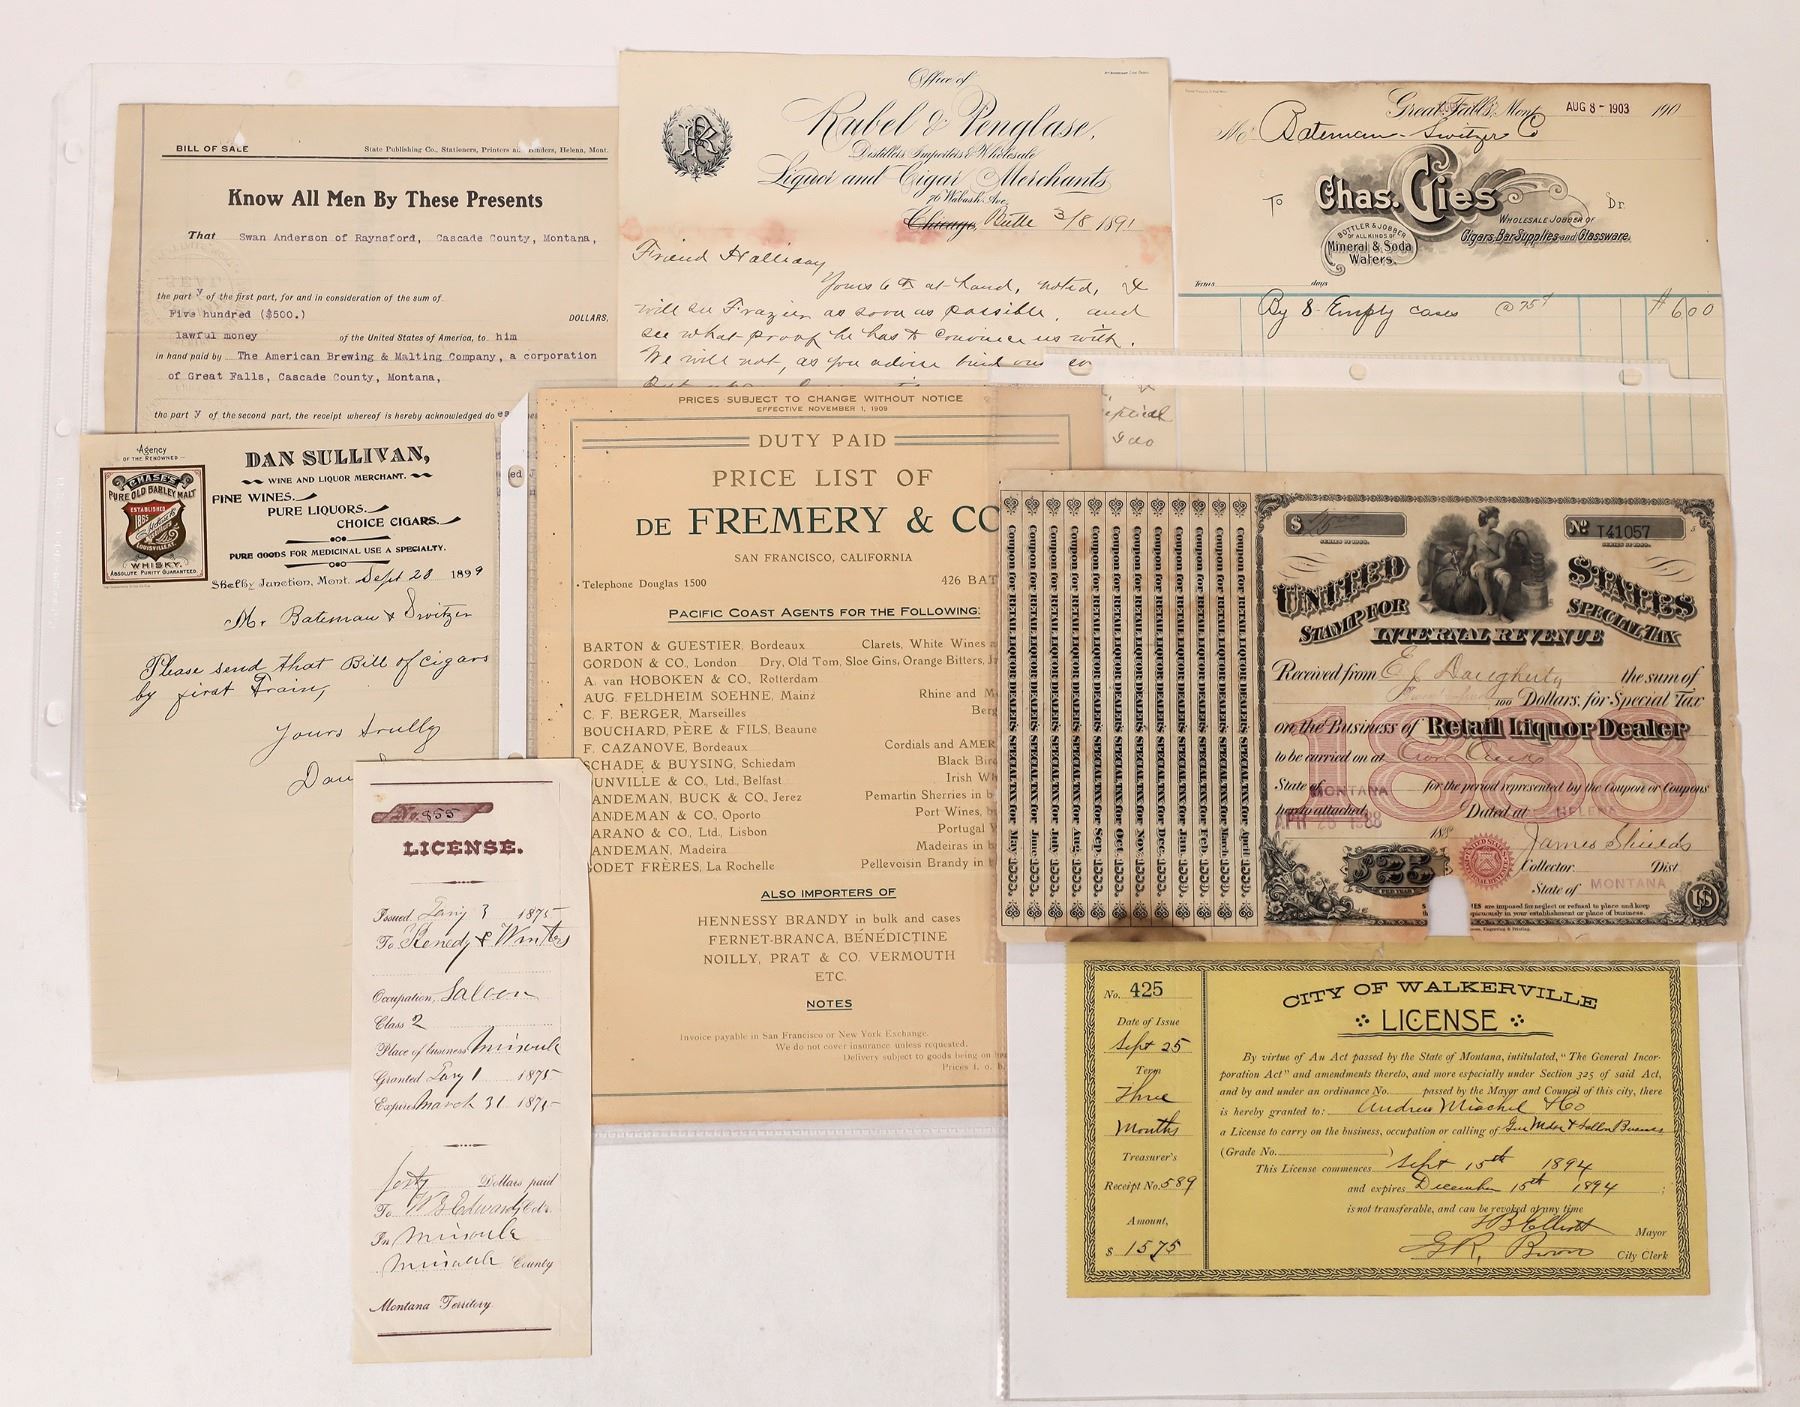 BILL OF SALE
State Publishing Co., Stationers, Printers and Binders, Helena, Mont.
Know All Men By These Presents
That Swan Anderson of Raynsford, Cascade County, Montana,
the party of the first part, for and in consideration of the sum of
Five hundred ($500.) DOLLARS,
lawful money of the United States of America, to him
in hand paid by The American Brewing & Malting Company, a corporation
of Great Falls, Cascade County, Montana,
the party of the second part, the receipt whereof is hereby acknowledged does
Office of
Rubel & Penglase,
Distillers Importers & Wholesale
Liquor and Cigar Merchants
76 Wabash Ave.
Chicago, Butte 3/8 1891
Friend Halliday
Yours 6th at hand, noted, &
will see Frazier as soon as possible, and
see what proof he has to convince us with.
We will not, as you advise bind our
Great Falls, Mont. AUG 8 - 1903 190
M Bateman-Switzer Co
To Chas. Gies Dr.
WHOLESALE JOBBER OF
Cigars, Bar Supplies and Glassware.
BOTTLER & JOBBER
OF ALL KINDS OF
Mineral & Soda
Waters.
Terms days
By 8 Empty cases @ 75¢ $ 6 00
Agency
OF THE RENOWNED
CHASE'S
PURE OLD BARLEY MALT
ESTABLISHED
1865
LOUISVILLE, KY.
WHISKY.
ABSOLUTE PURITY GUARANTEED.
DAN SULLIVAN,
WINE AND LIQUOR MERCHANT.
FINE WINES.
PURE LIQUORS.
CHOICE CIGARS.
PURE GOODS FOR MEDICINAL USE A SPECIALTY.
Shelby Junction, Mont. Sept 28 1899
Mr Bateman & Switzer
Please send that Bill of cigars
by first Train,
Yours Trully
Dan
PRICES SUBJECT TO CHANGE WITHOUT NOTICE
EFFECTIVE NOVEMBER 1, 1909
DUTY PAID
PRICE LIST OF
DE FREMERY & CO
SAN FRANCISCO, CALIFORNIA
Telephone Douglas 1500 426 BAT
PACIFIC COAST AGENTS FOR THE FOLLOWING:
BARTON & GUESTIER, Bordeaux Clarets, White Wines
GORDON & CO., London Dry, Old Tom, Sloe Gins, Orange Bitters,
A. van HOBOKEN & CO., Rotterdam
AUG. FELDHEIM SOEHNE, Mainz Rhine and M
C. F. BERGER, Marseilles Berg
BOUCHARD, PÈRE & FILS, Beaune
F. CAZANOVE, Bordeaux Cordials and AMER
SCHADE & BUYSING, Schiedam Black Bir
DUNVILLE & CO., Ltd., Belfast Irish Wh
SANDEMAN, BUCK & CO., Jerez Pemartin Sherries in b
SANDEMAN & CO., Oporto Port Wines,
ARANO & CO., Ltd., Lisbon Portugal
ANDEMAN, Madeira Madeiras in b
GODET FRÈRES, La Rochelle Pellevoisin Brandy in
ALSO IMPORTERS OF
HENNESSY BRANDY in bulk and cases
FERNET-BRANCA, BÉNÉDICTINE
NOILLY, PRAT & CO. VERMOUTH
ETC.
NOTES
Invoice payable in San Francisco or New York Exchange.
We do not cover insurance unless requested.
Delivery subject to goods being on
Prices f. o. b.
No. 855
LICENSE.
Issued Jany 3 1875
To Kenedy & Winters
Occupation, Saloon
Class 2
Place of business Missoula
Granted Jany 1 1875
Expires March 31 1875
forty Dollars paid
To W B Edwards
In Missoula
Missoula County
Montana Territory
Coupon for RETAIL LIQUOR DEALER'S SPECIAL TAX for May, 1888
Coupon for RETAIL LIQUOR DEALER'S SPECIAL TAX for June, 1888
Coupon for RETAIL LIQUOR DEALER'S SPECIAL TAX for July, 1888
Coupon for RETAIL LIQUOR DEALER'S SPECIAL TAX for Aug. 1888
Coupon for RETAIL LIQUOR DEALER'S SPECIAL TAX for Sep. 1888
Coupon for RETAIL LIQUOR DEALER'S SPECIAL TAX for Oct. 1888
Coupon for RETAIL LIQUOR DEALER'S SPECIAL TAX for Nov. 1888
Coupon for RETAIL LIQUOR DEALER'S SPECIAL TAX for Dec. 1888
Coupon for RETAIL LIQUOR DEALER'S SPECIAL TAX for Jan.
Coupon for RETAIL LIQUOR DEALER'S SPECIAL TAX for Feb.
Coupon for RETAIL LIQUOR DEALER'S SPECIAL TAX for March
Coupon for RETAIL LIQUOR DEALER'S SPECIAL TAX for April
$ No. 141057
SERIES OF 1888. SERIES OF 1888.
UNITED STATES
STAMP FOR SPECIAL TAX
INTERNAL REVENUE
Received from E J Daugherty the sum of
100 Dollars, for Special Tax
on the Business of Retail Liquor Dealer
1888
to be carried on at
State of MONTANA for the period represented by the Coupon or Coupons
hereto attached. Dated at HELENA
APR 25 1888 188
James Shields
Collector Dist
State of MONTANA
$25
PER YEAR
are imposed for neglect or refusal to place and keep
conspicuously in your establishment or place of business.
US
No. 425
Date of Issue
Sept 25
Term
Three
Months
Treasurer's
Receipt No. 589
Amount,
$ 15 75
CITY OF WALKERVILLE
LICENSE
By virtue of An Act passed by the State of Montana, intituled, "The General Incor-
poration Act" and amendments thereto, and more especially under Section 325 of said Act,
and by and under an ordinance No. passed by the Mayor and Council of this city, there
is hereby granted to: Andrew Mischel & Co
a License to carry on the business, occupation or calling of
(Grade No. )
This License commences Sept 15th 1894
and expires December 15th 1894 ;
is not transferable, and can be revoked at any time
H B Elliott Mayor
G R, City Clerk